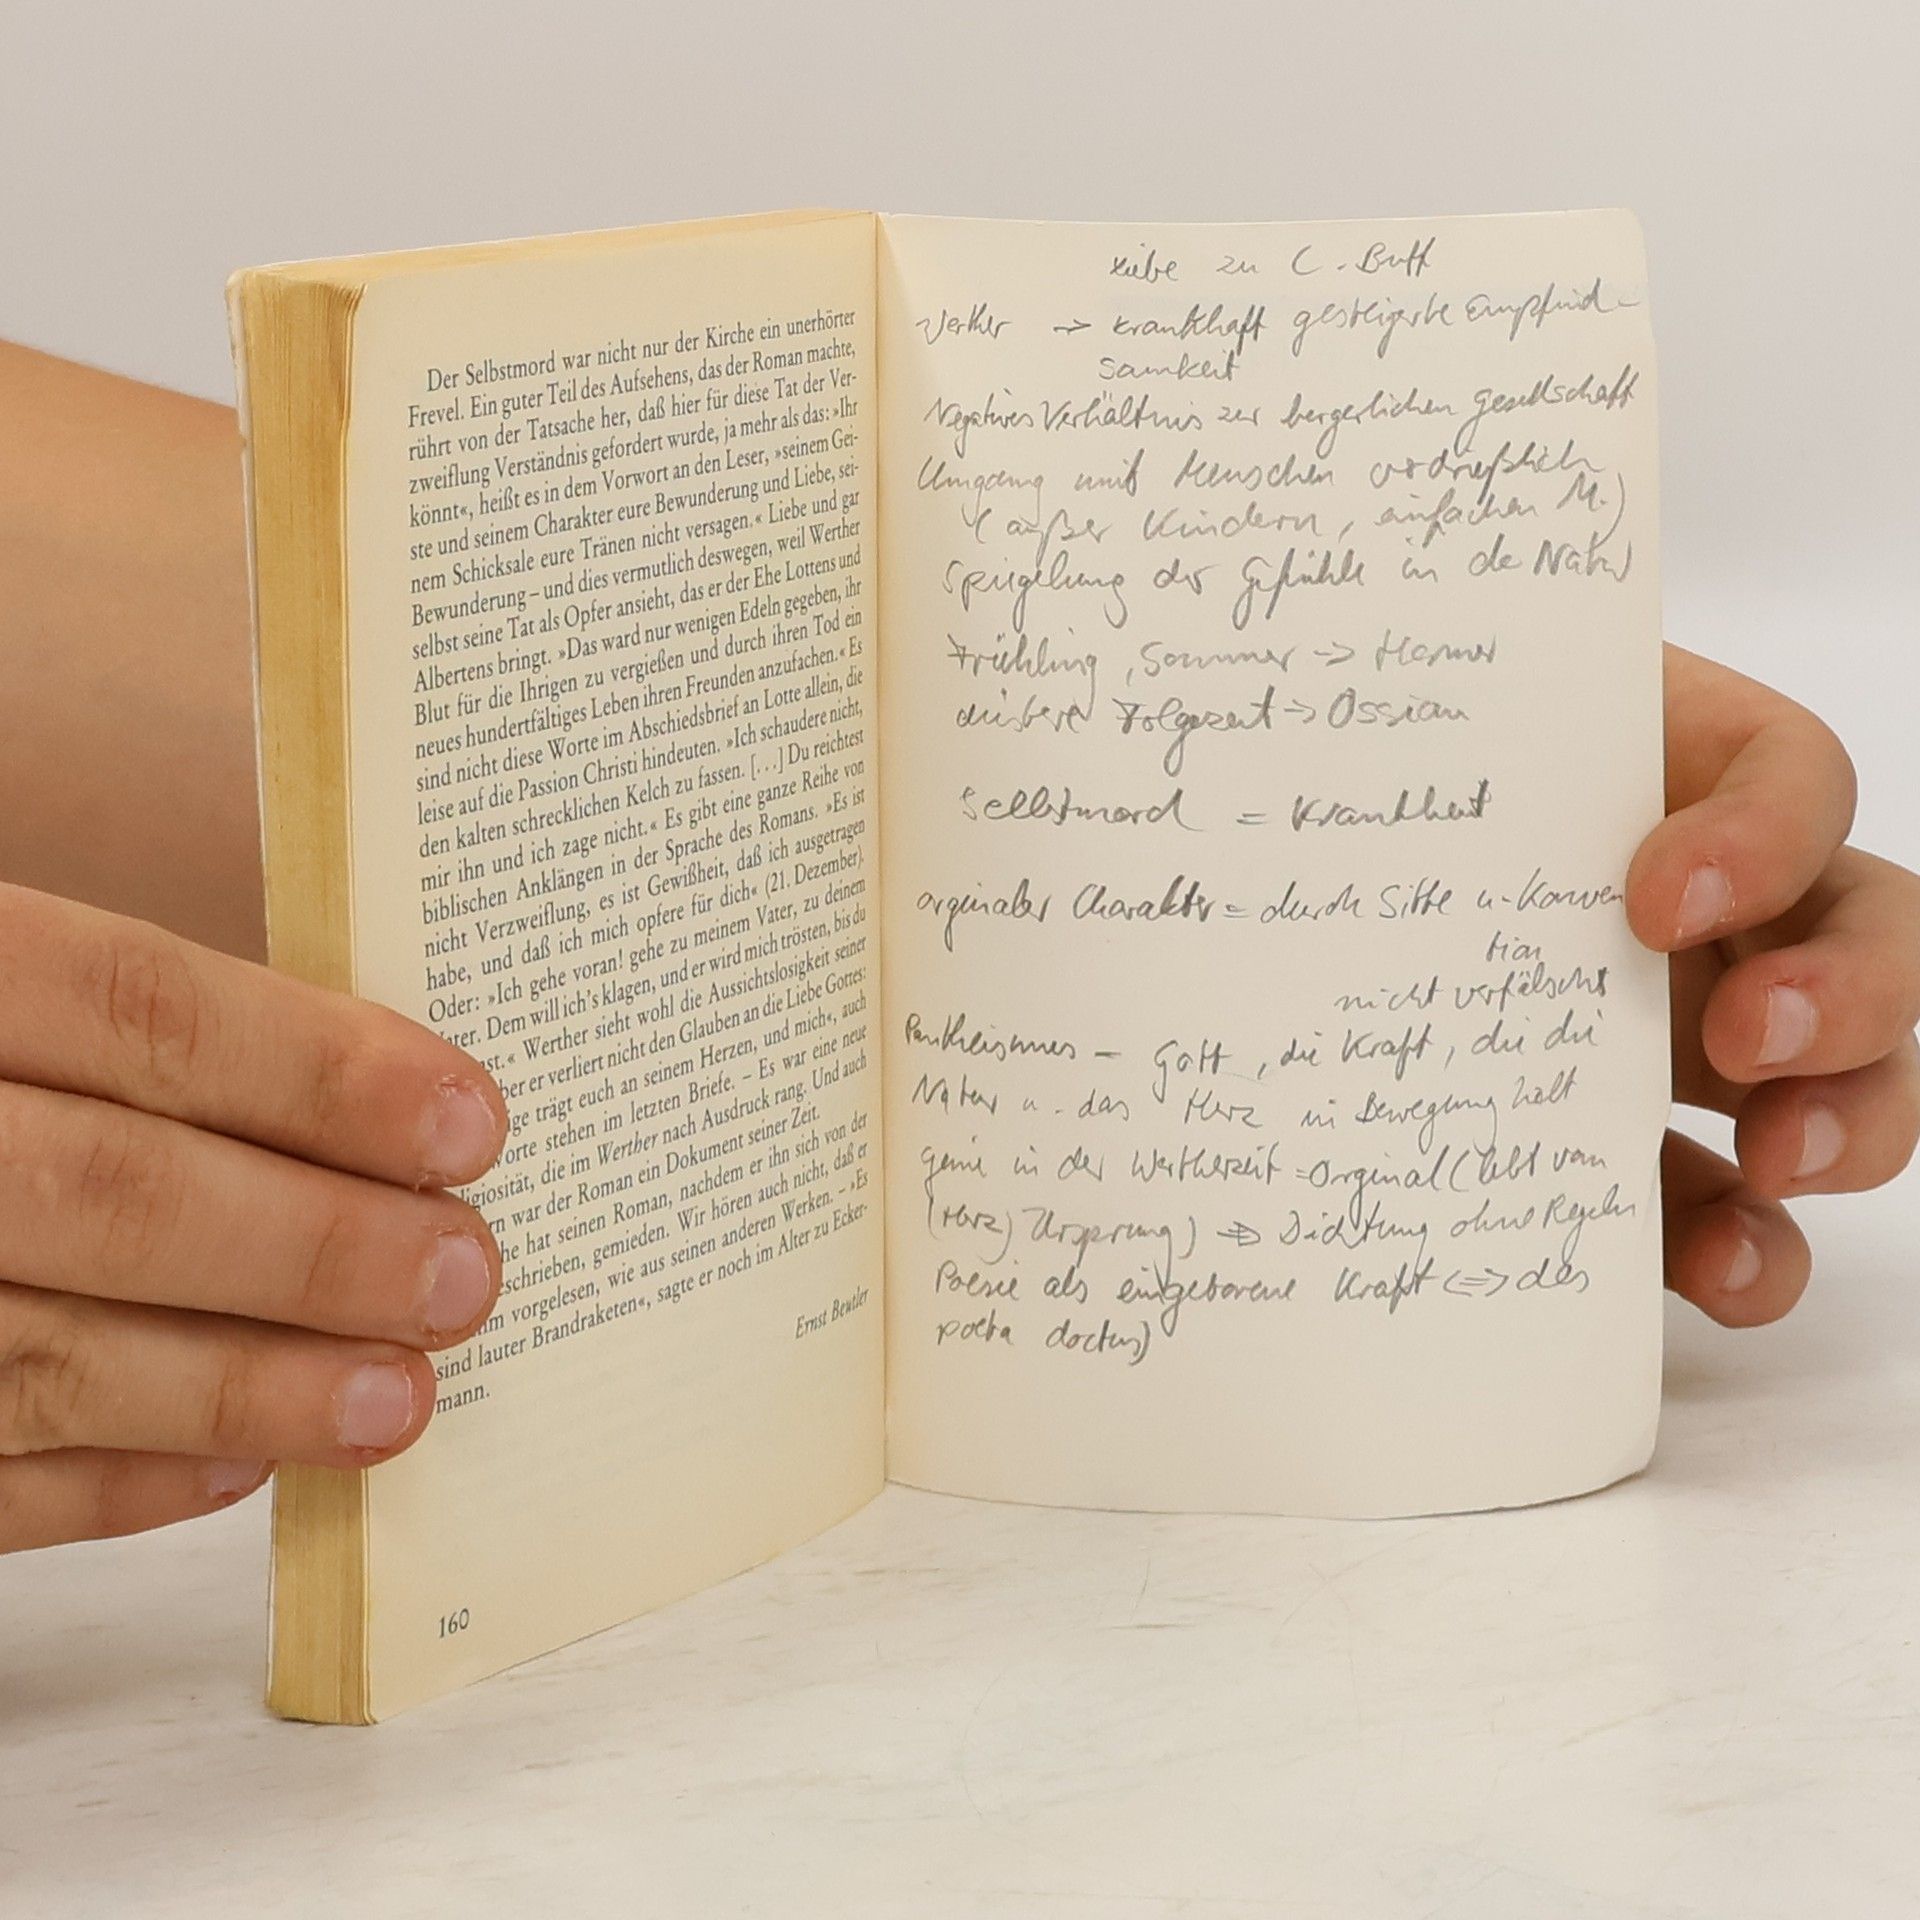 Der Selbstmord war nicht nur der Kirche ein unerhörter
Frevel. Ein guter Teil des Aufsehens, das der Roman machte,
rührt von der Tatsache her, daß hier für diese Tat der Ver-
zweiflung Verständnis gefordert wurde, ja mehr als das: »Ihr
könnt«, heißt es in dem Vorwort an den Leser, »seinem Gei-
ste und seinem Charakter eure Bewunderung und Liebe, sei-
nem Schicksale eure Tränen nicht versagen.« Liebe und gar
Bewunderung – und dies vermutlich deswegen, weil Werther
selbst seine Tat als Opfer ansieht, das er der Ehe Lottens und
Albertens bringt. »Das ward nur wenigen Edeln gegeben, ihr
Blut für die Ihrigen zu vergießen und durch ihren Tod ein
neues hundertfältiges Leben ihren Freunden anzufachen.« Es
sind nicht diese Worte im Abschiedsbrief an Lotte allein, die
leise auf die Passion Christi hindeuten. »Ich schaudere nicht,
den kalten schrecklichen Kelch zu fassen. [...] Du reichtest
mir ihn und ich zage nicht.« Es gibt eine ganze Reihe von
biblischen Anklängen in der Sprache des Romans. »Es ist
nicht Verzweiflung, es ist Gewißheit, daß ich ausgetragen
habe, und daß ich mich opfere für dich« (21. Dezember).
Oder: »Ich gehe voran! gehe zu meinem Vater, zu deinem
ater. Dem will ich's klagen, und er wird mich trösten, bis du
st.« Werther sieht wohl die Aussichtslosigkeit seiner
ber er verliert nicht den Glauben an die Liebe Gottes:
ige trägt euch an seinem Herzen, und mich«, auch
orte stehen im letzten Briefe. – Es war eine neue
ligiosität, die im Werther nach Ausdruck rang. Und auch
rn war der Roman ein Dokument seiner Zeit.
he hat seinen Roman, nachdem er ihn sich von der
schrieben, gemieden. Wir hören auch nicht, daß er
hm vorgelesen, wie aus seinen anderen Werken. – »Es
sind lauter Brandraketen«, sagte er noch im Alter zu Ecker-
mann.
Ernst Beutler
160
Liebe zu C. Buff
Werther -> krankhaft gesteigerte Empfind-
samkeit
Negatives Verhältnis zur bergerlichen Gesellschaft
Umgang mit Menschen verdrießlich
(außer Kindern, einfachen M.)
Spiegelung der Gefühle in de Natur
Frühling, Sommer -> Homer
düstere Folgezeit -> Ossian
Selbstmord = Krankheit
orginaler Charakter = durch Sitte u. Konven
tion
nicht verfälscht
Pantheismus – Gott, die Kraft, die die
Natur u. das Herz in Bewegung hält
Genie in der Wertherzeit = Orginal (lebt vom
(Herz) Ursprung) => Dichtung ohne Regeln
Poesie als eingeborene Kraft <=> des
poeta doctus)